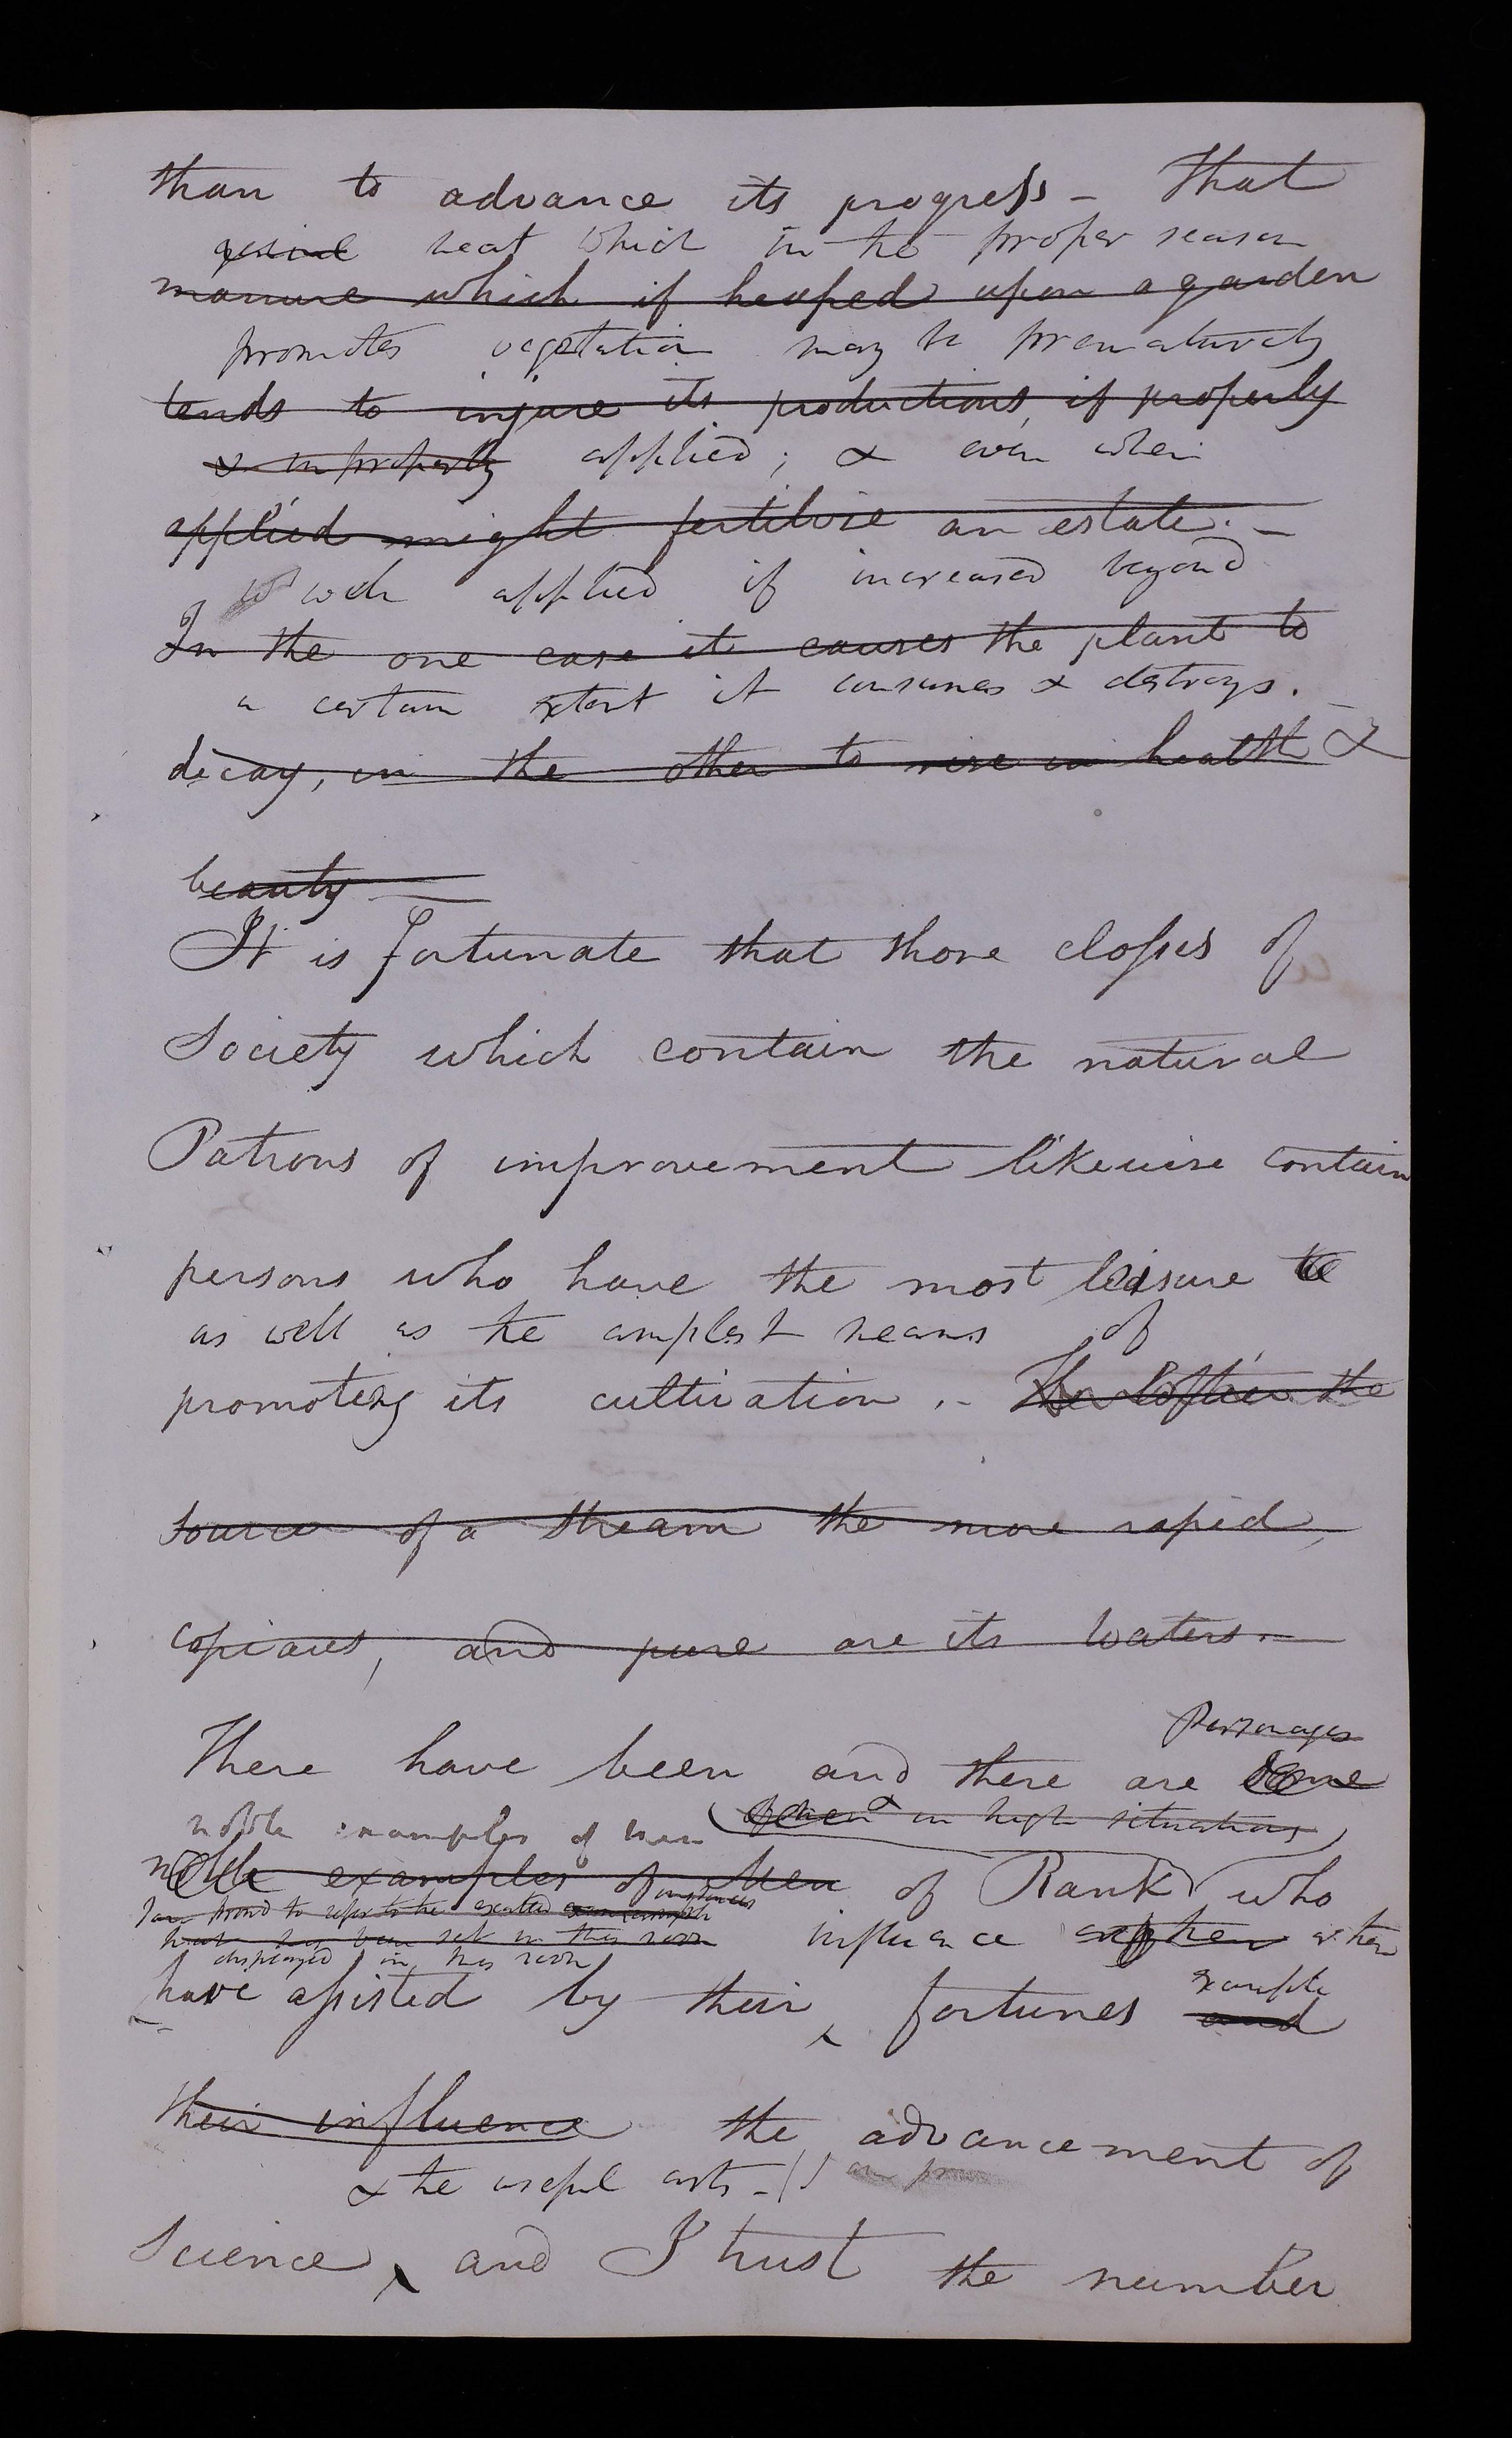 than to advance its progress - That
genial heat which in the proper season
manure which if heaped upon a garden
promotes vegetation may be prematurely
tends to injure its productions, if properly
& improperly applied; & even when
applied might fertilise an estate. -
well applied if increased beyond
In the one case it causes the plant to
a certain extent it consumes & destroys.
decay, in the other to rise in health &
beauty -
It is fortunate that those classes of
Society which contain the natural
Patrons of improvement likewise contain
persons who have the most leisure to
as well as the amplest means of
promoting its cultivation. - The loftier the
source of a stream the more rapid,
copious, and pure are its waters. -
Personages
There have been and there are some
noble examples of men often & in high situations
noble examples of Men of Rank who
I am proud to refer to the exalted instances
have been set in this room influence when
displayed in this room
have assisted by their fortunes example
and
their influence the advancement of
& the useful arts - // am proud
Science, and I trust the number